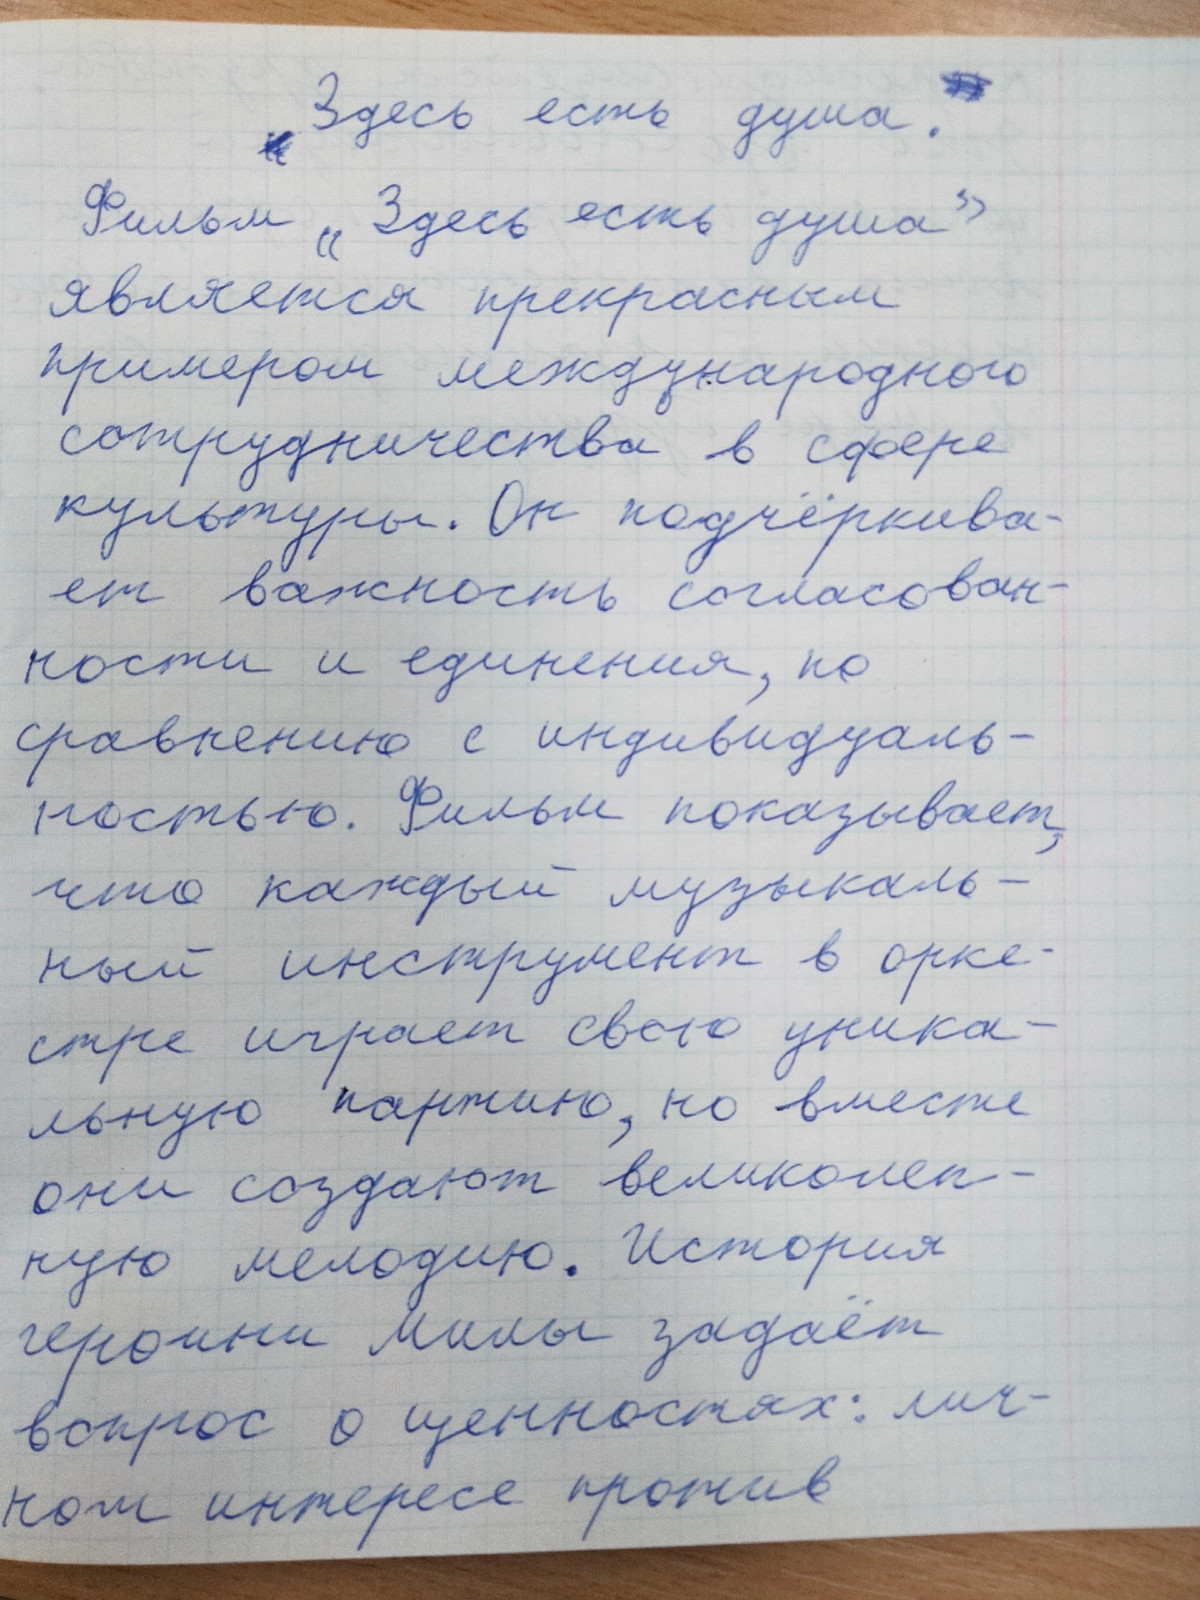 Здесь есть душа.
Фильм „Здесь есть душа”
является прекрасным
примером международного
сотрудничества в сфере
культуры. Он подчёркива-
ет важность согласован-
ности и единения, по
сравнению с индивидуаль-
ностью. Фильм показывает,
что каждый музыкаль-
ный инструмент в орке-
стре играет свою уника-
льную партию, но вместе
они создают великолеп-
ную мелодию. История
героини Милы задаёт
вопрос о ценностях: лич-
ном интересе против